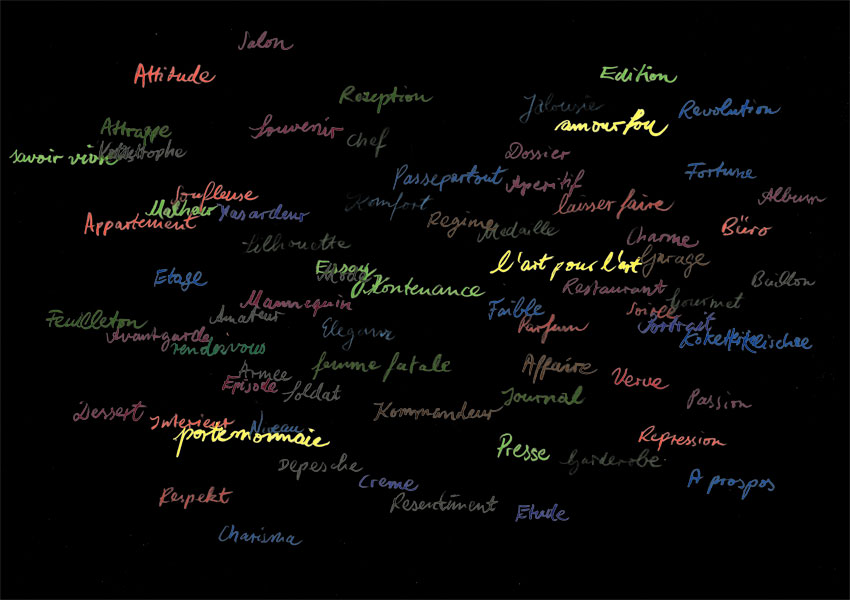 Salon
Attitude
Edition
Rezeption
Jalousie
Revolution
Attrappe
Souvenir
amour fou
Chef
savoir vivre
Katastrophe
Dossier
Passepartout
Aperitif
Fortune
Soufleuse
Komfort
laisser faire
Album
Malheur
Hasardeur
Appartement
Regime
Medaille
Charme
Büro
Silhouette
l'art pour l'art
Garage
Essay
Mode
Etage
Kontenance
Restaurant
Mannequin
Faible
Soiree
Gourmet
Feuilleton
Amateur
Parfum
Portrait
Avantgarde
Eleganz
rendezvous
femme fatale
Affaire
Armee
Episode
Soldat
Verve
Journal
Passion
Dessert
Kommandeur
Interieur
Niveau
portemonnaie
Repression
Presse
Garderobe
Depesche
Creme
A prospos
Respekt
Resentiment
Etude
Charisma